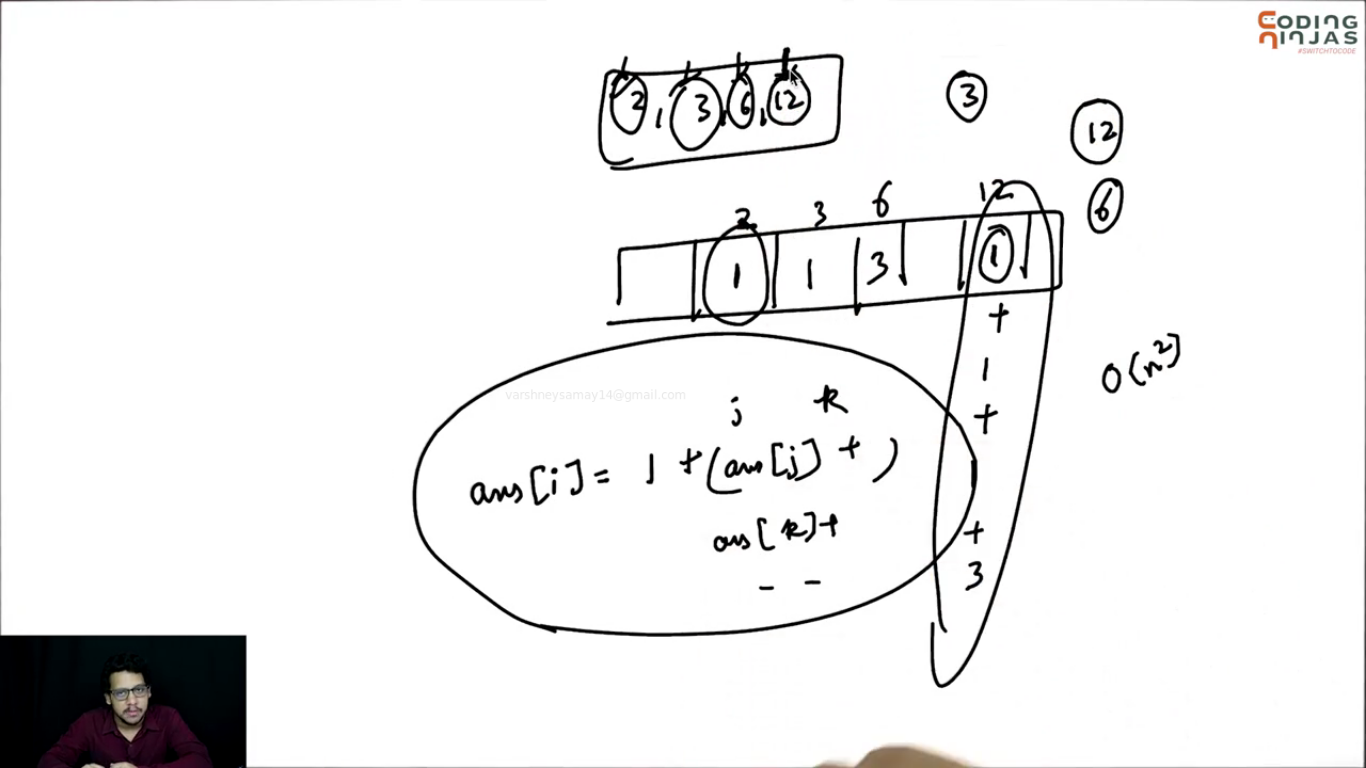 CODING
NINJAS
#SWITCHTOCODE
2, 3, 6, 12
3
12
6
2 3 6 12
1 1 3 1
+
1
+
+
3
O(n²)
varshneysamay14@gmail.com
j k
ans[i] = 1 + (ans[j] + )
ans[k] +
- -